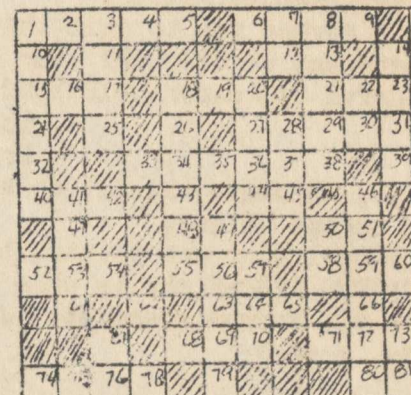 1 2 3 4 5 6 7 8 9
10 11 12 13 14
15 16 17 18 19 20 21 22 23
24 25 26 27 28 29 30 31
32 33 34 35 36 3 38 39
40 41 42 43 44 45 46
47 50 51
52 53 54 55 56 57 58 59 60
63 64 65 66
68 69 70 71 72 73
74 76 78 79 80 81